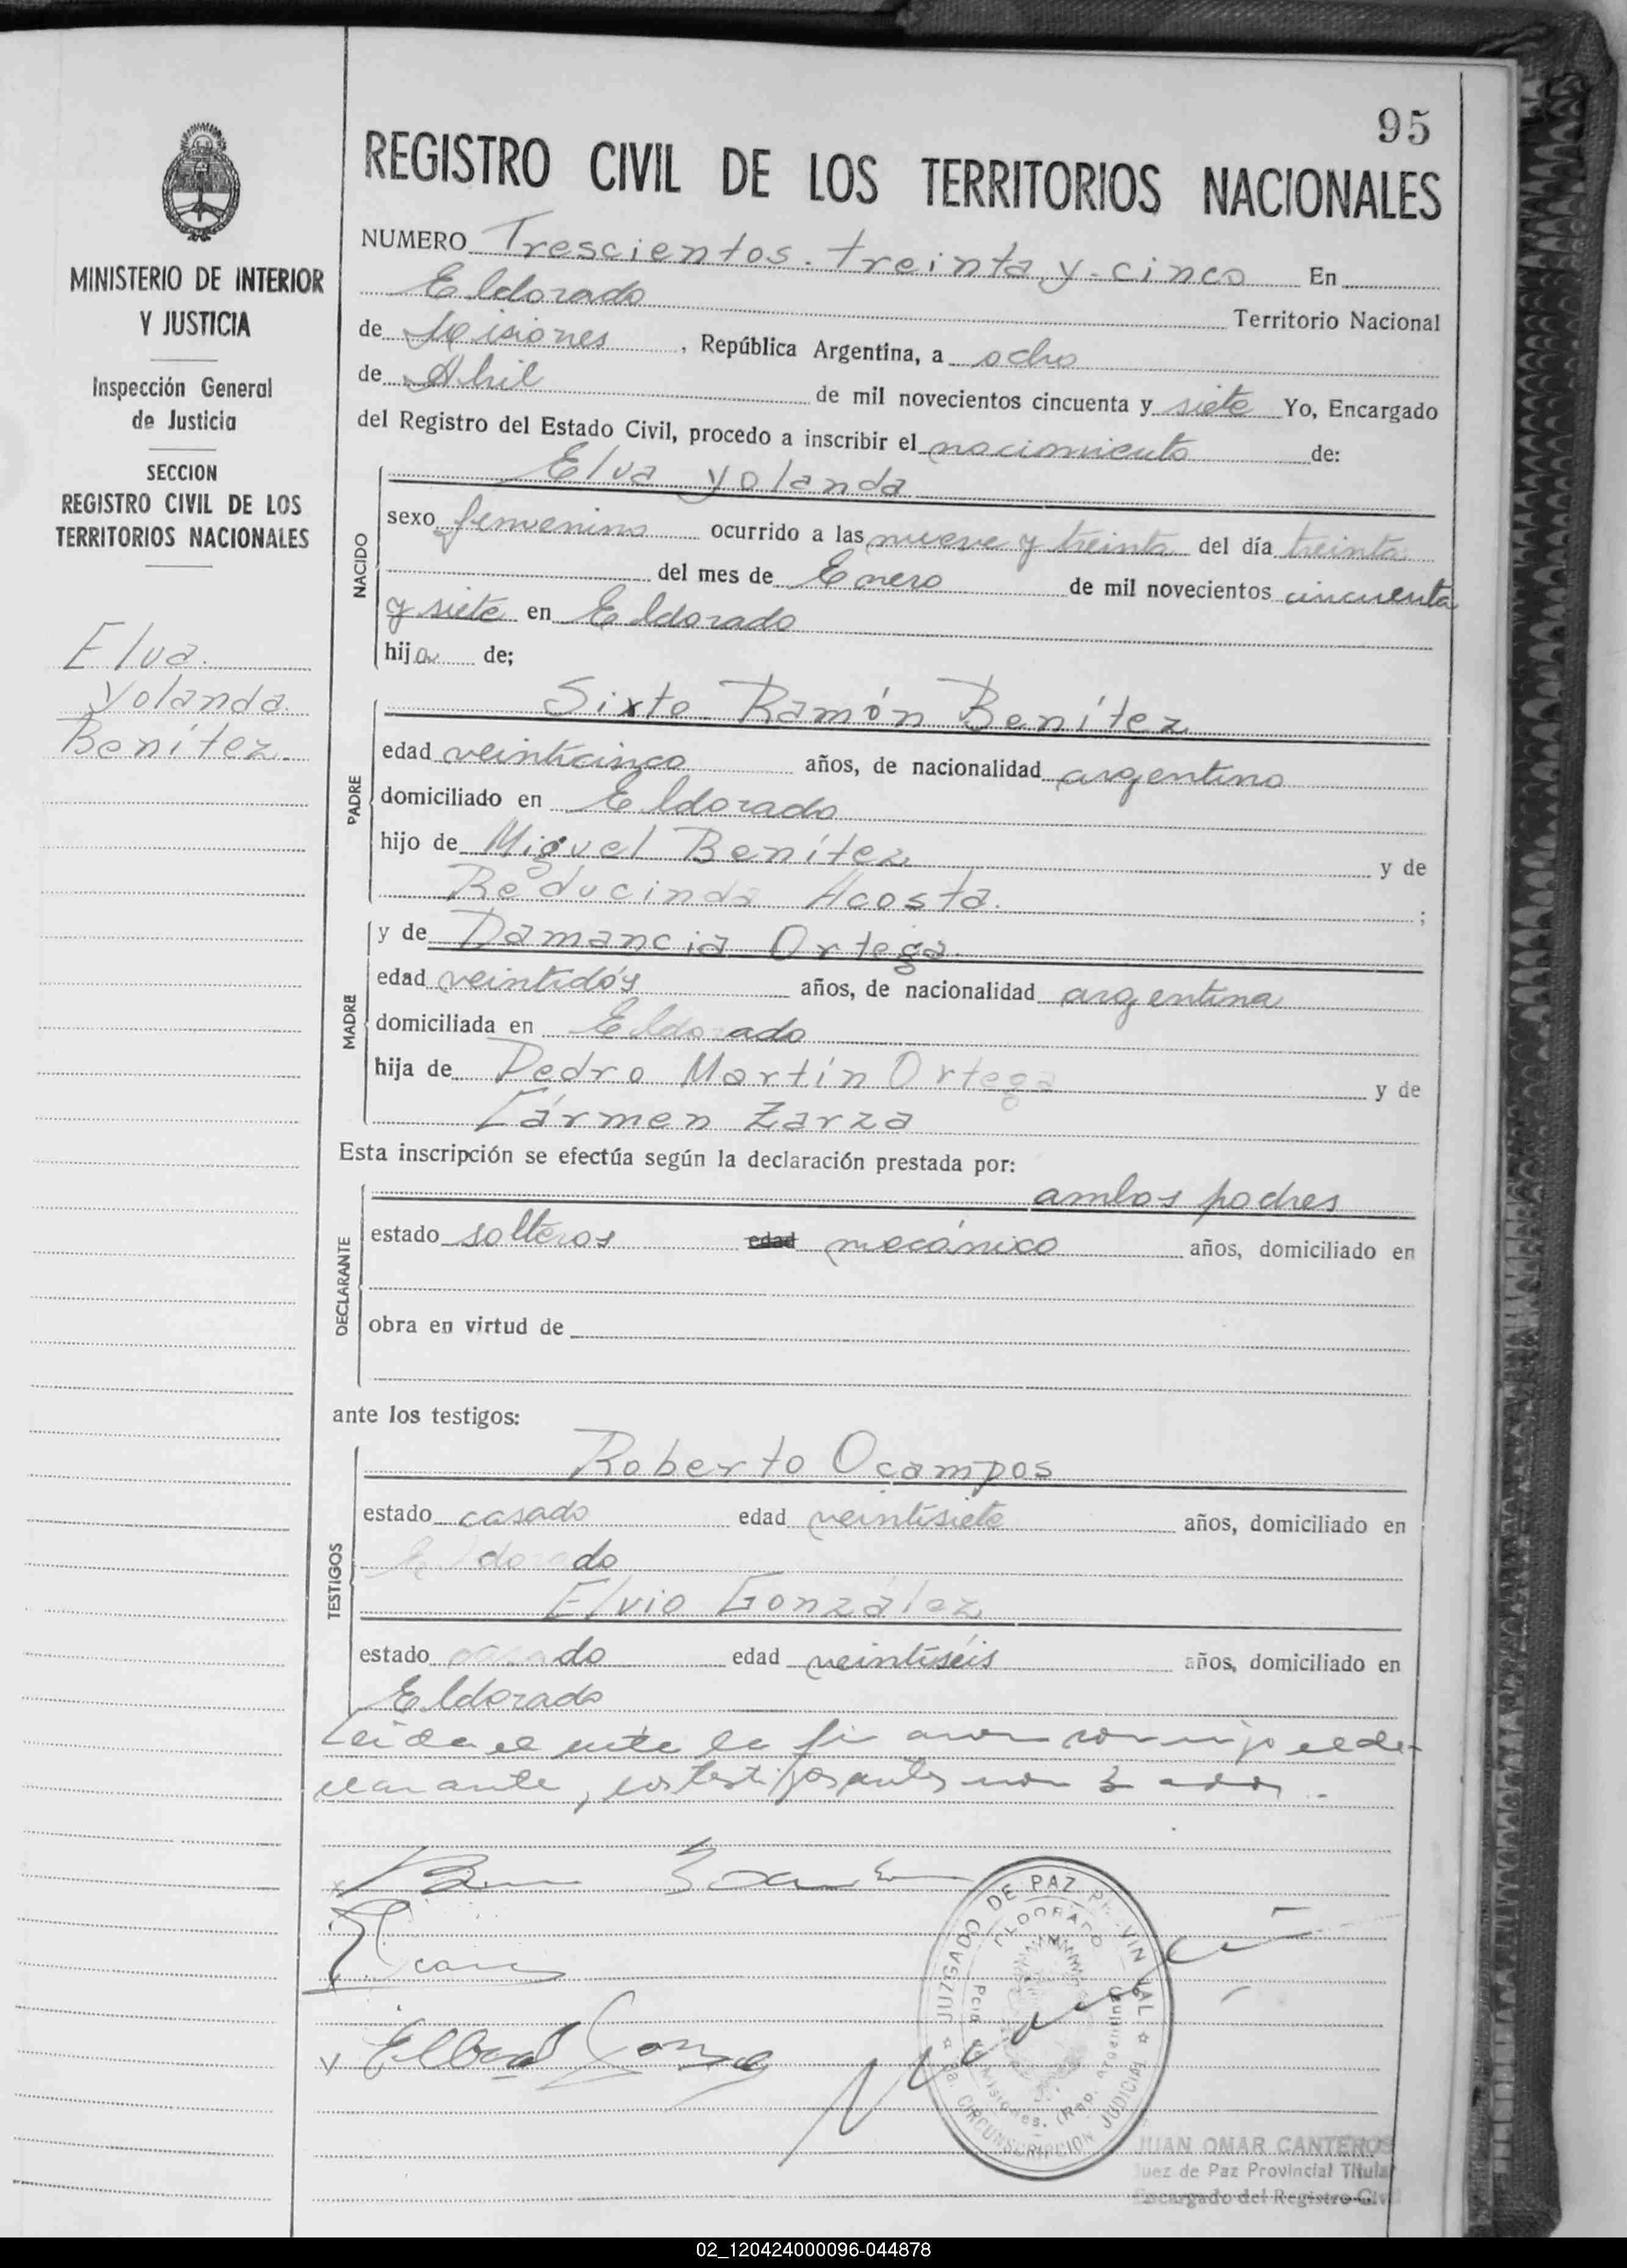 95
REGISTRO CIVIL DE LOS TERRITORIOS NACIONALES
MINISTERIO DE INTERIOR
Y JUSTICIA
Inspección General
de Justicia
SECCION
REGISTRO CIVIL DE LOS
TERRITORIOS NACIONALES
Elva
Yolanda
Benítez
NUMERO Trescientos treinta y cinco En
Eldorado Territorio Nacional
de Misiones, República Argentina, a ocho
de Abril de mil novecientos cincuenta y siete Yo, Encargado
del Registro del Estado Civil, procedo a inscribir el nacimiento de:
Elva Yolanda
NACIDO
sexo femenino ocurrido a las nueve y treinta del día treinta
del mes de Enero de mil novecientos cincuenta
y siete en Eldorado
hija de;
Sixto Ramón Benítez
PADRE
edad veinticinco años, de nacionalidad argentino
domiciliado en Eldorado
hijo de Miguel Benítez y de
Reducinda Acosta. ;
y de Damancia Ortega.
MADRE
edad veintidós años, de nacionalidad argentina
domiciliada en Eldorado
hija de Pedro Martín Ortega y de
Cármen Zarza
Esta inscripción se efectúa según la declaración prestada por:
ambos padres
DECLARANTE
estado solteros edad mecánico años, domiciliado en
obra en virtud de
ante los testigos:
Roberto Ocampos
TESTIGOS
estado casado edad veintisiete años, domiciliado en
Eldorado
Elvio González
estado casado edad veintiséis años, domiciliado en
Eldorado
Leida el acta la
JUZGADO DE PAZ PROVINCIAL
ELDORADO
Pcia. Misiones. (Rep. Argentina)
CIRCUNSCRIPCION JUDICIAL
JUAN OMAR CANTEROS
Juez de Paz Provincial Titular
Encargado del Registro Civil
02_120424000096-044878